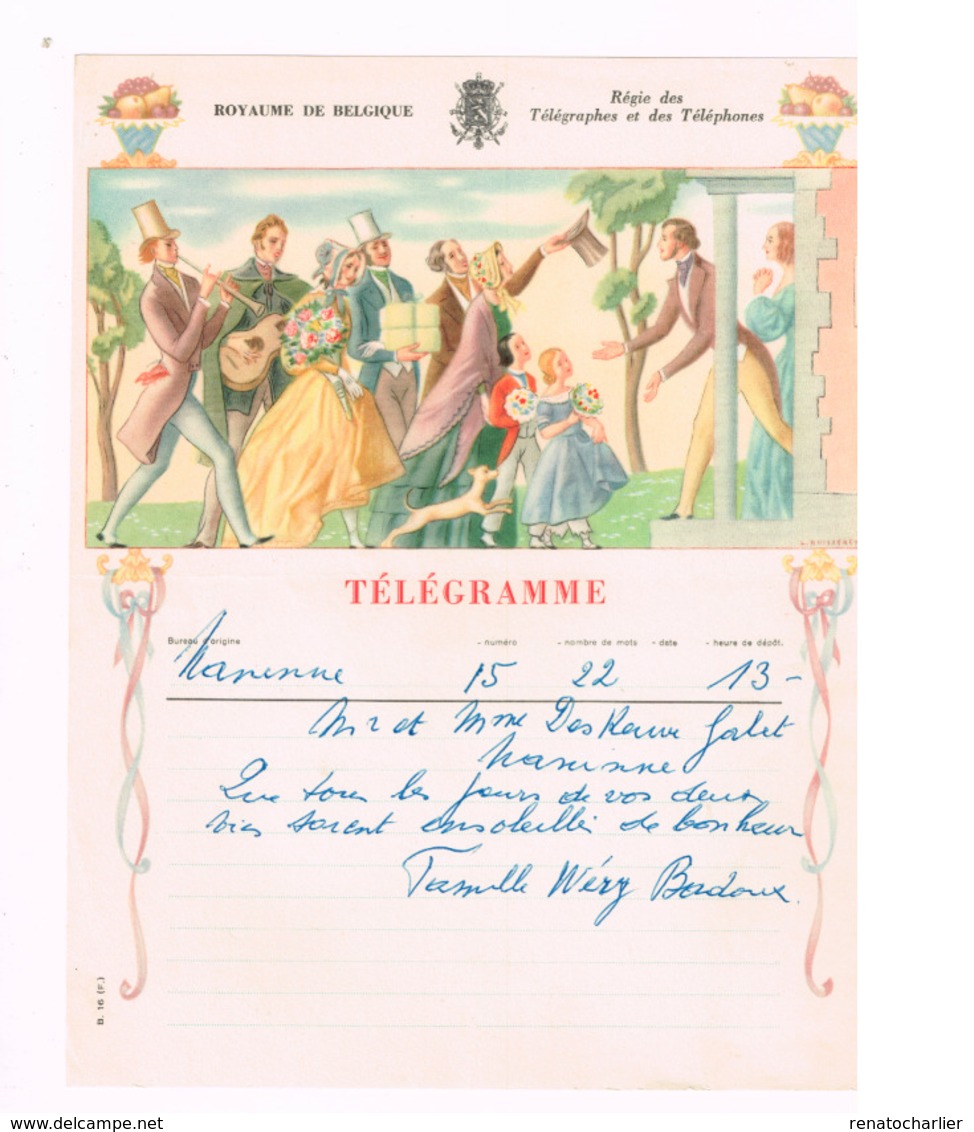 ROYAUME DE BELGIQUE
Régie des
Télégraphes et des Téléphones
TÉLÉGRAMME
Bureau d'origine - numéro - nombre de mots - date - heure de dépôt.
15 22 13 -
Mr et Mme Galet
Que tous les jours de vos deux
vies soient ensoleillés de bonheur
Famille Wéry Badoux.
B. 16 (F.)
delcampe.net
renatocharlier